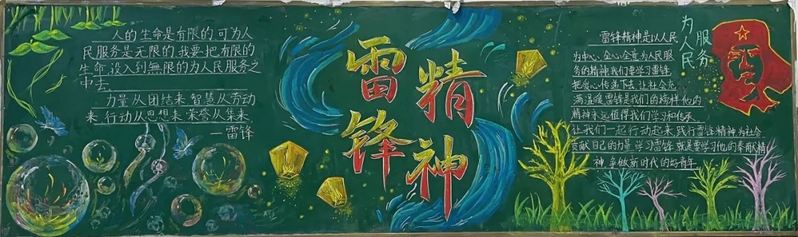 人的生命是有限的,可为人
民服务是无限的,我要把有限的
生命,投入到無限的为人民服务之
中去
力量从团结来,智慧从劳动
来,行动从思想来,荣誉从集体
来
—雷锋
雷锋
精神
为人民
服务
雷锋精神是以人民
为中心,全心全意为人民服
务的精神我们要学习雷锋
把爱心传递下去,让社会充
满温暖,雷锋是我们的榜样,他的
精神永远值得我们学习和传承
让我们一起行动起来,践行雷锋精神,为社会
贡献自己的力量,学习雷锋,就是要学习他的奉献精
神,争做新时代的好青年